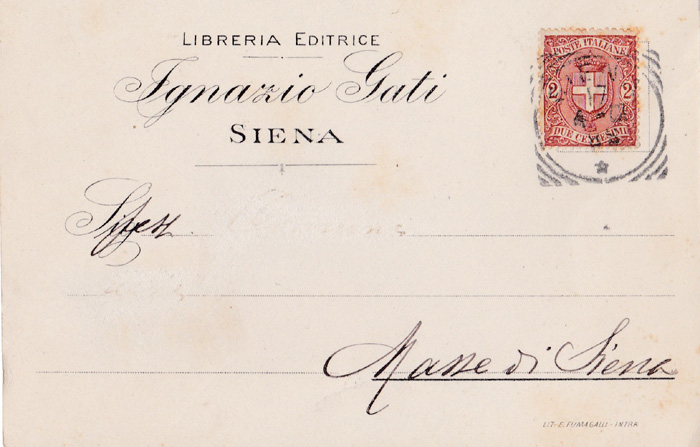 LIBRERIA EDITRICE
Ignazio Gati
SIENA
POSTE ITALIANE
2 2
DUE CENTESIMI
Masse di Siena
LIT. E. FUMAGALLI - INTRA